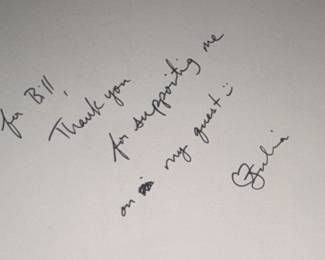 for Bill,
Thank you
for supporting me
on my quest :)
♡ Julia